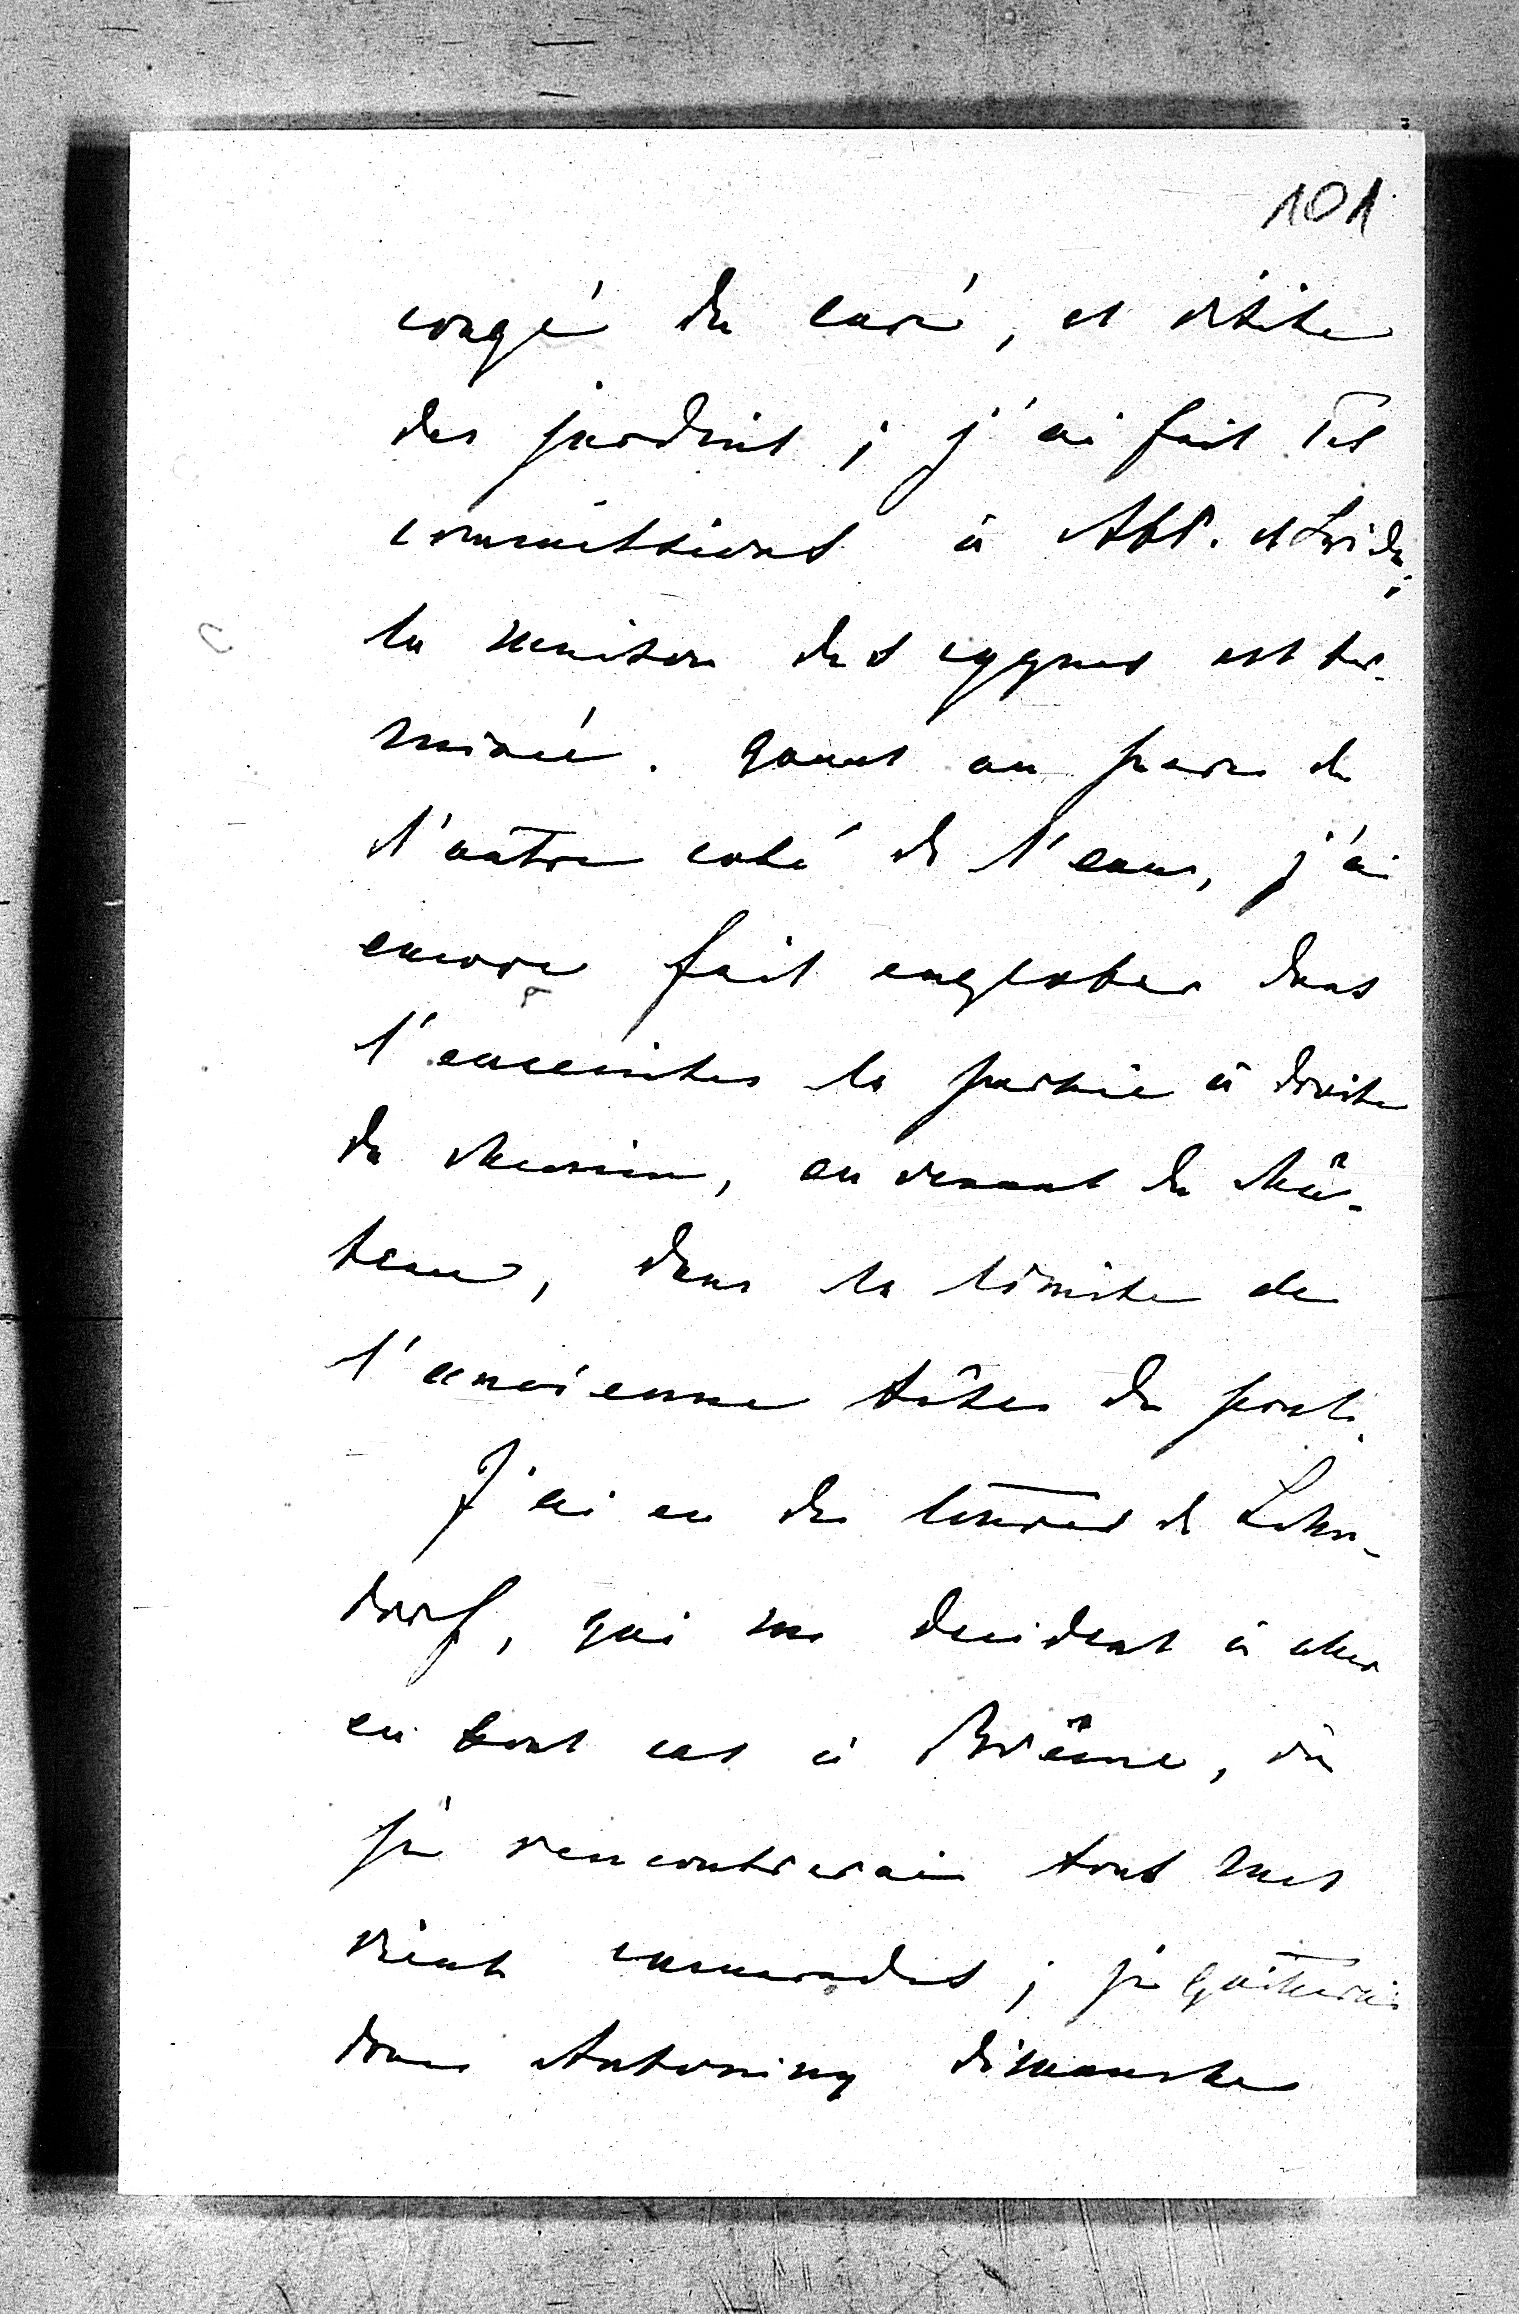 101
congé du curé, et visite
des jardins ; j'ai fait tes
commissions à Abt. et
la maison des cygnes est ter-
minée. Quant au parc de
l'autre coté de l'eau, j'ai
encore fait englober dans
l'enceinte la partie à droite
du chemin, en venant du châ-
teau, dans la limite de
l'ancienne du
J'ai eu des lettres de Lehn-
dorf, qui me decident à aller
en tout cas à Bräsne, où
je rencontrerai tous mes
vieux camarades ; je quitterai
donc Antoniny dimanche